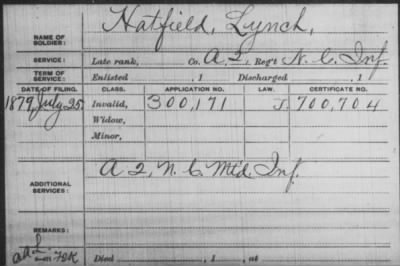 NAME OF SOLDIER: Hatfield, Lynch,
SERVICE: Late rank, Co. A. 2, Reg't N. C. Inf.
TERM OF SERVICE: Enlisted , 1 Discharged , 1
DATE OF FILING. CLASS. APPLICATION NO. LAW. CERTIFICATE NO.
1879, July 25. Invalid, 300,171 J. 700,704
Widow,
Minor,
ADDITIONAL SERVICES: A 2, N. C. Mtd. Inf.
REMARKS:
Died , 1 , at